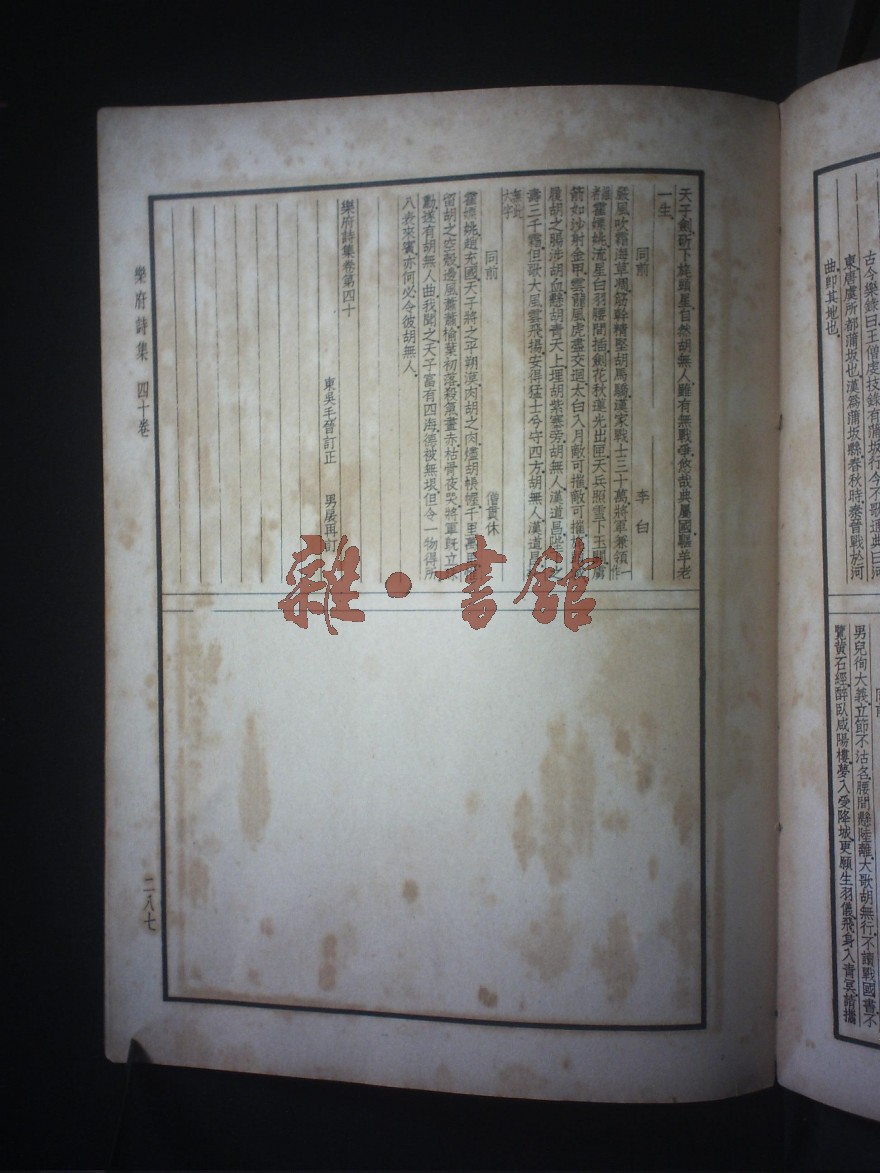 古今樂錄曰王僧虔技錄有蒲坂行今不歌通典曰河
東唐虞所都蒲坂也漢爲蒲坂縣春秋時秦晉戰於河
曲即其地也
同前
男兒徇大義立節不沽名腰間懸陸離大歌胡無行不讀戰國書不
覽黃石經醉臥咸陽樓夢入受降城更願生羽儀飛身入青冥請攜
天子劍斫下旄頭星自然胡無人雖有無戰爭悠哉典屬國驅羊老
一生
同前 李白
嚴風吹霜海草凋筋幹精堅胡馬驕漢家戰士三十萬將軍兼領一作
者霍嫖姚流星白羽腰間插劍花秋蓮光出匣天兵照雪下玉關虜
箭如沙射金甲雲龍風虎盡交迴太白入月敵可摧敵可摧
履胡之腸涉胡血懸胡青天上埋胡紫塞旁胡無人漢道昌陛之
壽三千霜但歌大風雲飛揚安得猛士兮守四方胡無人漢道昌
無此
大字
同前 僧貫休
霍嫖姚趙充國天子將之平朔漠肉胡之肉燼胡帳幄千里萬
留胡之空殼邊風蕭蕭榆葉初落殺氣晝赤枯骨夜哭將軍旣立
勳遂有胡無人曲我聞之天子富有四海德被無垠但令一物得所
八表來賓亦何必令彼胡無人
樂府詩集卷第四十
東吳毛晉訂正 男扆再訂
樂府詩集 四十卷
二八七
雜·書館